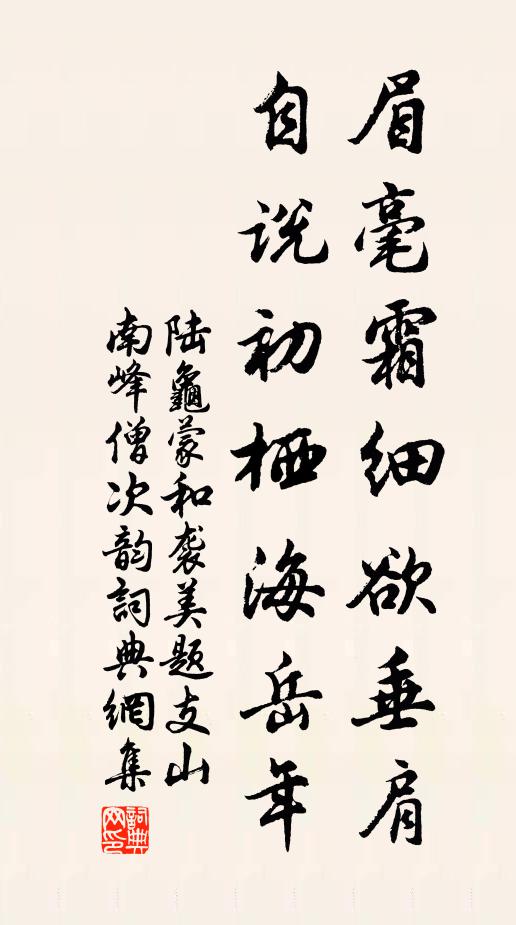 眉毫霜细欲垂肩
自说初栖海岳年
陆龜蒙和袭美题支山
南峰僧次韵詞典網集
詞典
网印